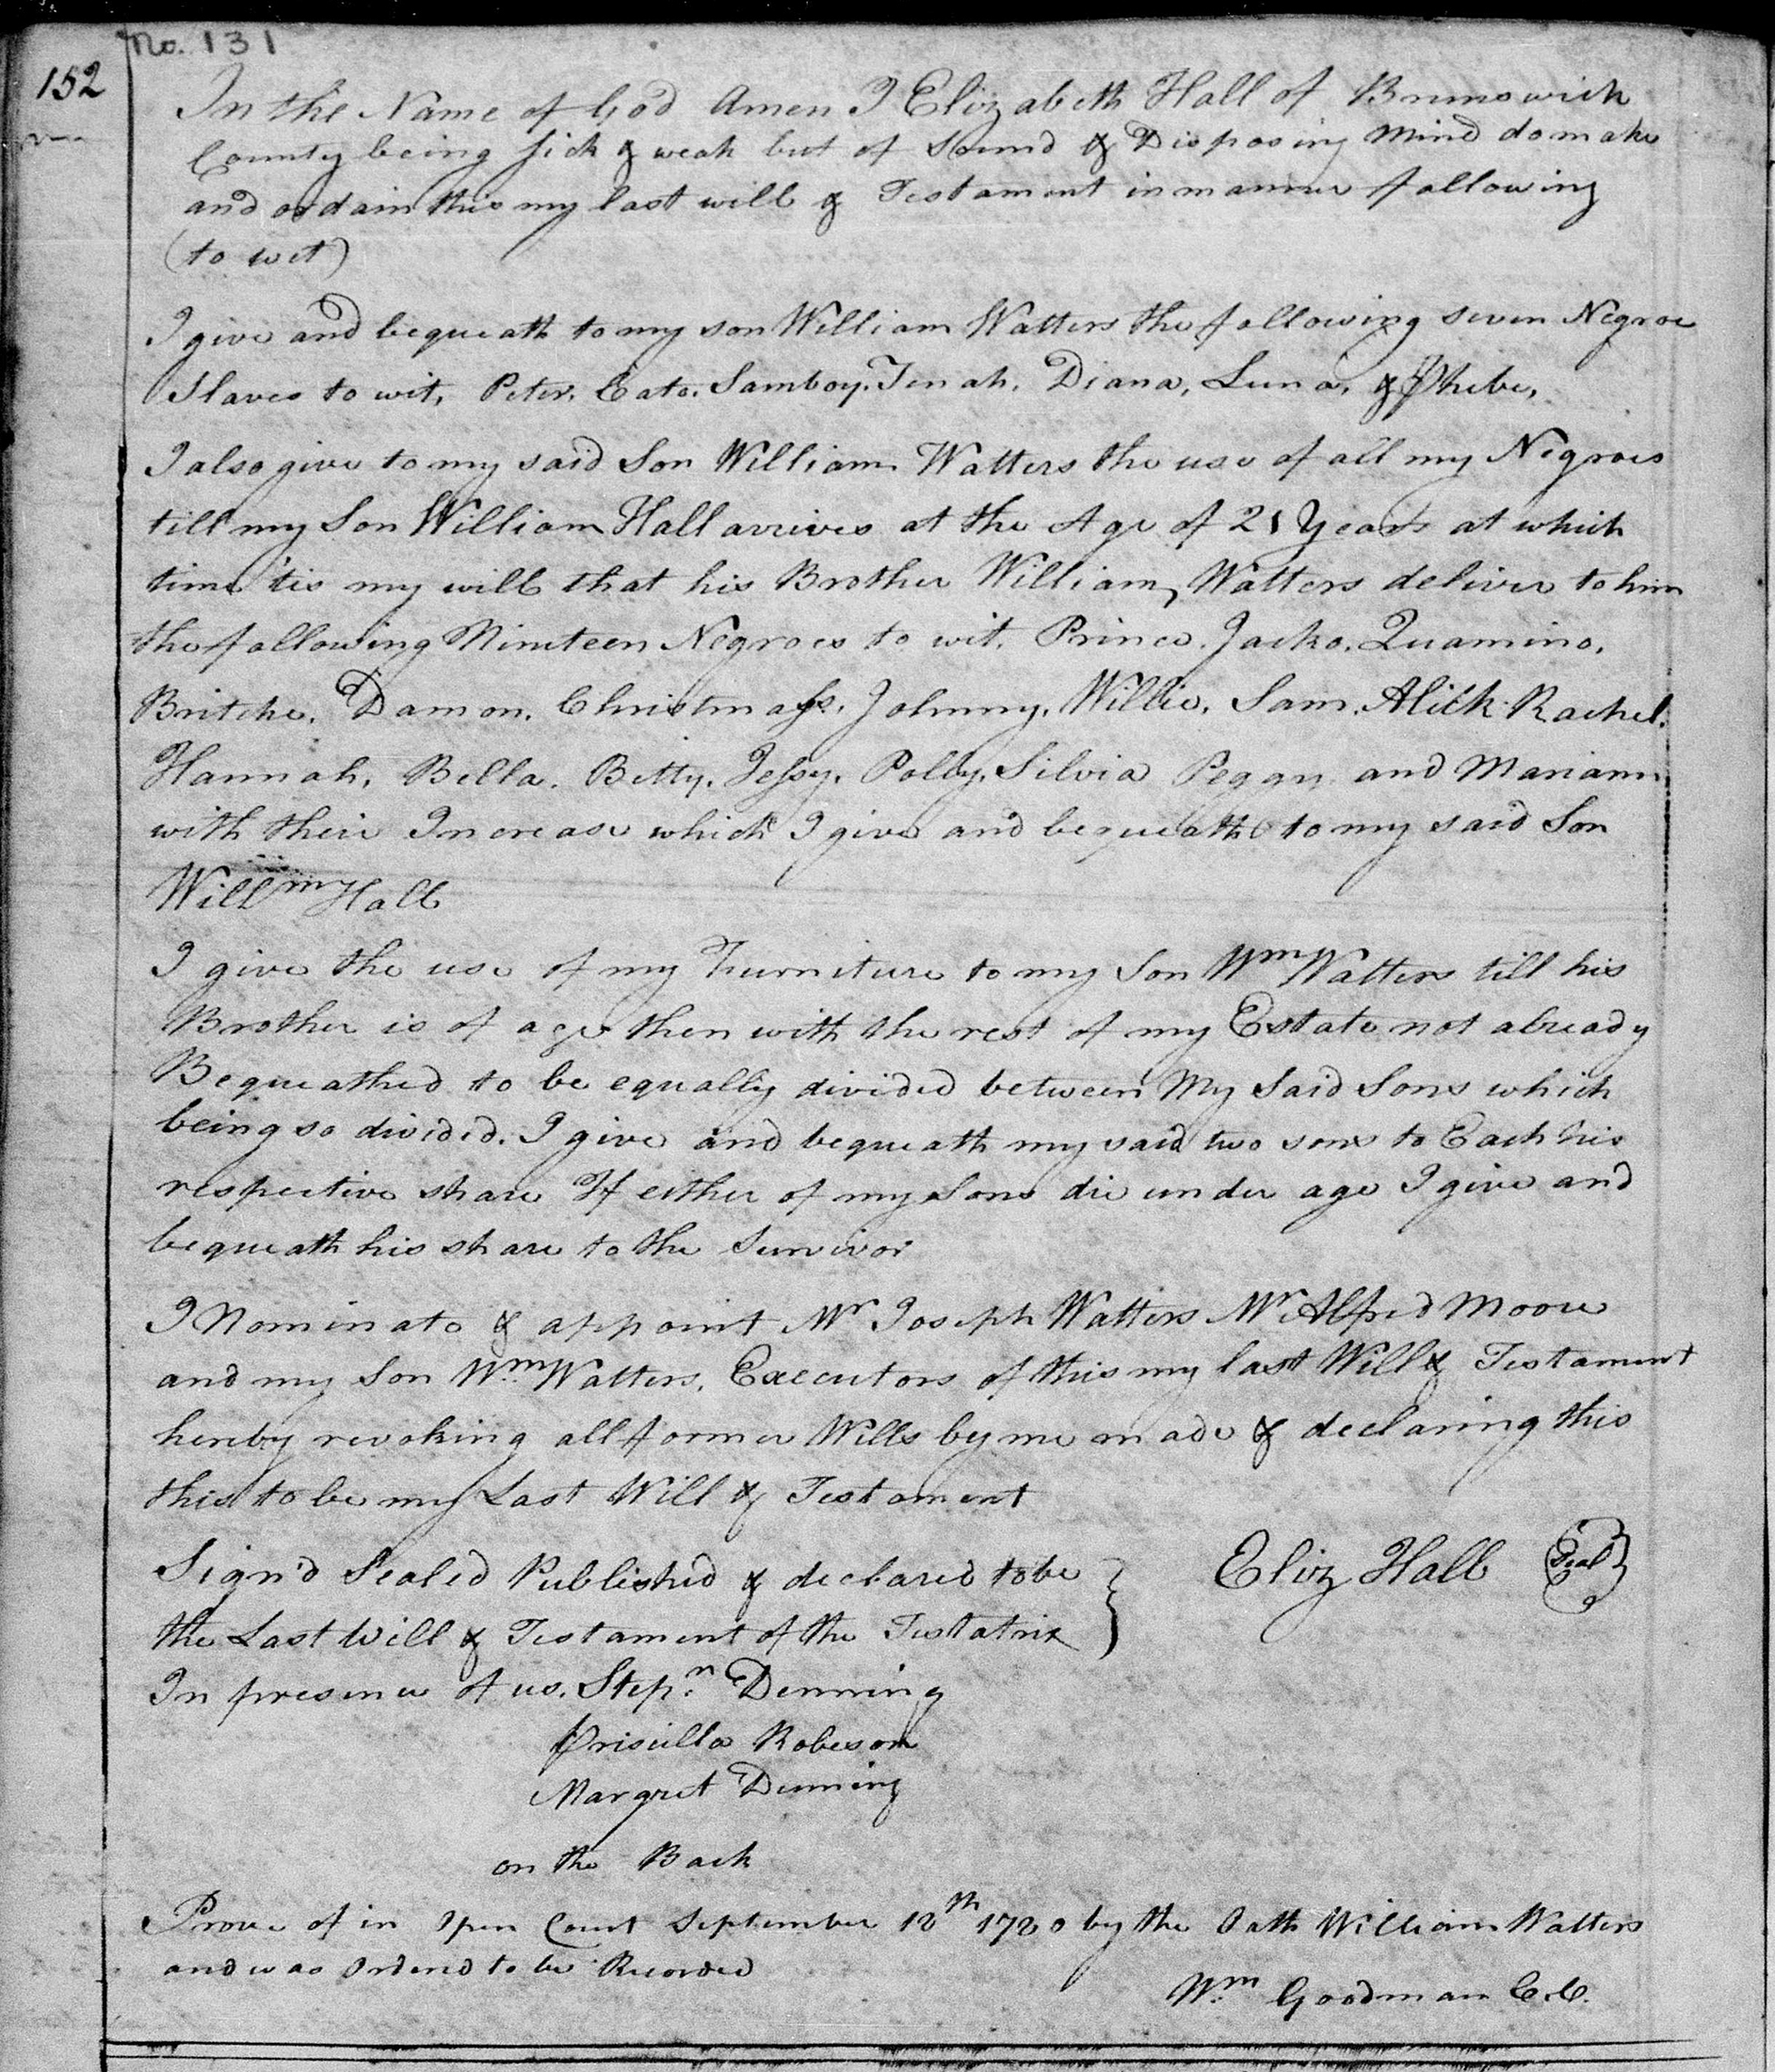 No. 131
152
In the Name of God Amen I Elizabeth Hall of Brunswick
County being sick & weak but of Sound & Disposing Mind do make
and ordain this my last will & Testament in manner following
(to wit)
I give and bequeath to my son William Watters the following seven Negroe
Slaves to wit, Peter, Cato, Samboy, Tenah, Diana, Luna, & Phebe,
I also give to my said Son William Watters the use of all my Negroes
till my Son William Hall arrives at the Age of 21 Years at which
time 'tis my will that his Brother William Watters deliver to him
the following Nineteen Negroes to wit, Prince, Jacko, Quamino,
Britche, Damon, Christmass, Johnny, Willie, Sam, Alick Rachel,
Hannah, Bella, Betty, Jessy, Polly, Silvia Peggy and Mariann
with their Increase which I give and bequeath to my said Son
Willm Hall
I give the use of my Furniture to my Son Wm Watters till his
Brother is of age then with the rest of my Estate not already
Bequeathed to be equally divided between My Said Sons which
being so divided. I give and bequeath my said two sons to Each his
respective share If either of my Sons die under age I give and
bequeath his share to the Survivor
I Nominate & appoint Mr Joseph Watters Mr Alfred Moore
and my Son Wm Watters, Executors of this my last Will & Testament
hereby revoking all former Wills by me made & declaring this
this to be my Last Will & Testament
Sign'd Sealed Published & declared to be
the Last Will & Testament of the Testatrix
Eliz Hall Seal
In presence of us. Stepn Denning
Priscilla Robeson
Margret Denning
on the Back
Prove of in Open Court September 12th 1780 by the Oath William Watters
and was Ordered to be Recorded
Wm Goodman C.C.